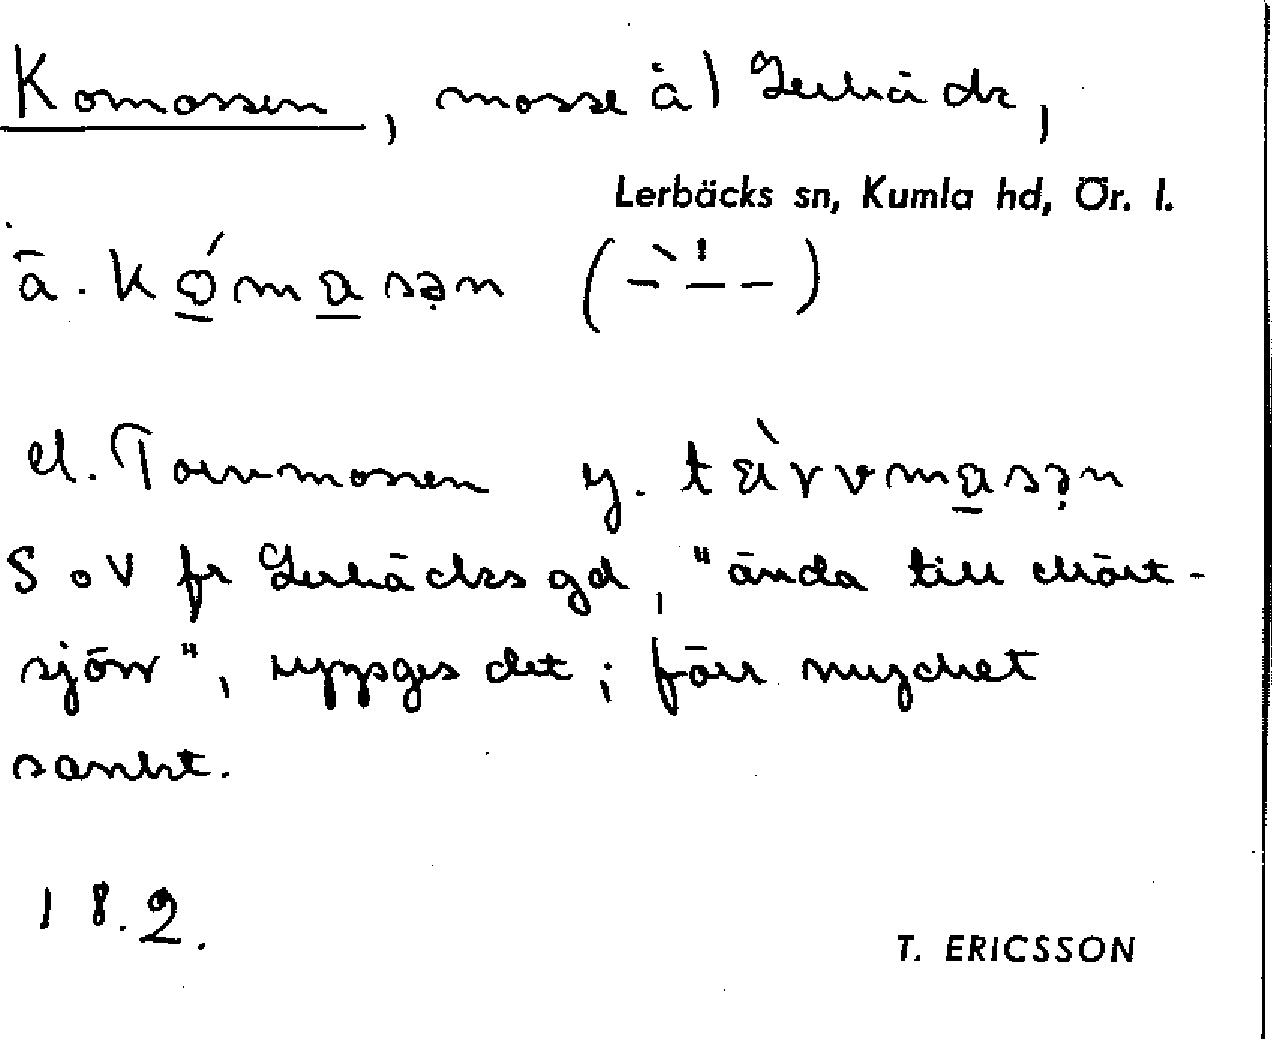 Komossen, mosse å 1 Lerbäck,
Lerbäcks sn, Kumla hd, Ör. l.
ä. kómasən (–̀ –́ –)
el. Torvmossen y. tàrvmasən
S o V fr Lerbäcks gd, "ända till Mört-
sjön", uppges det; förr mycket
sankt.
18.2.
T. ERICSSON